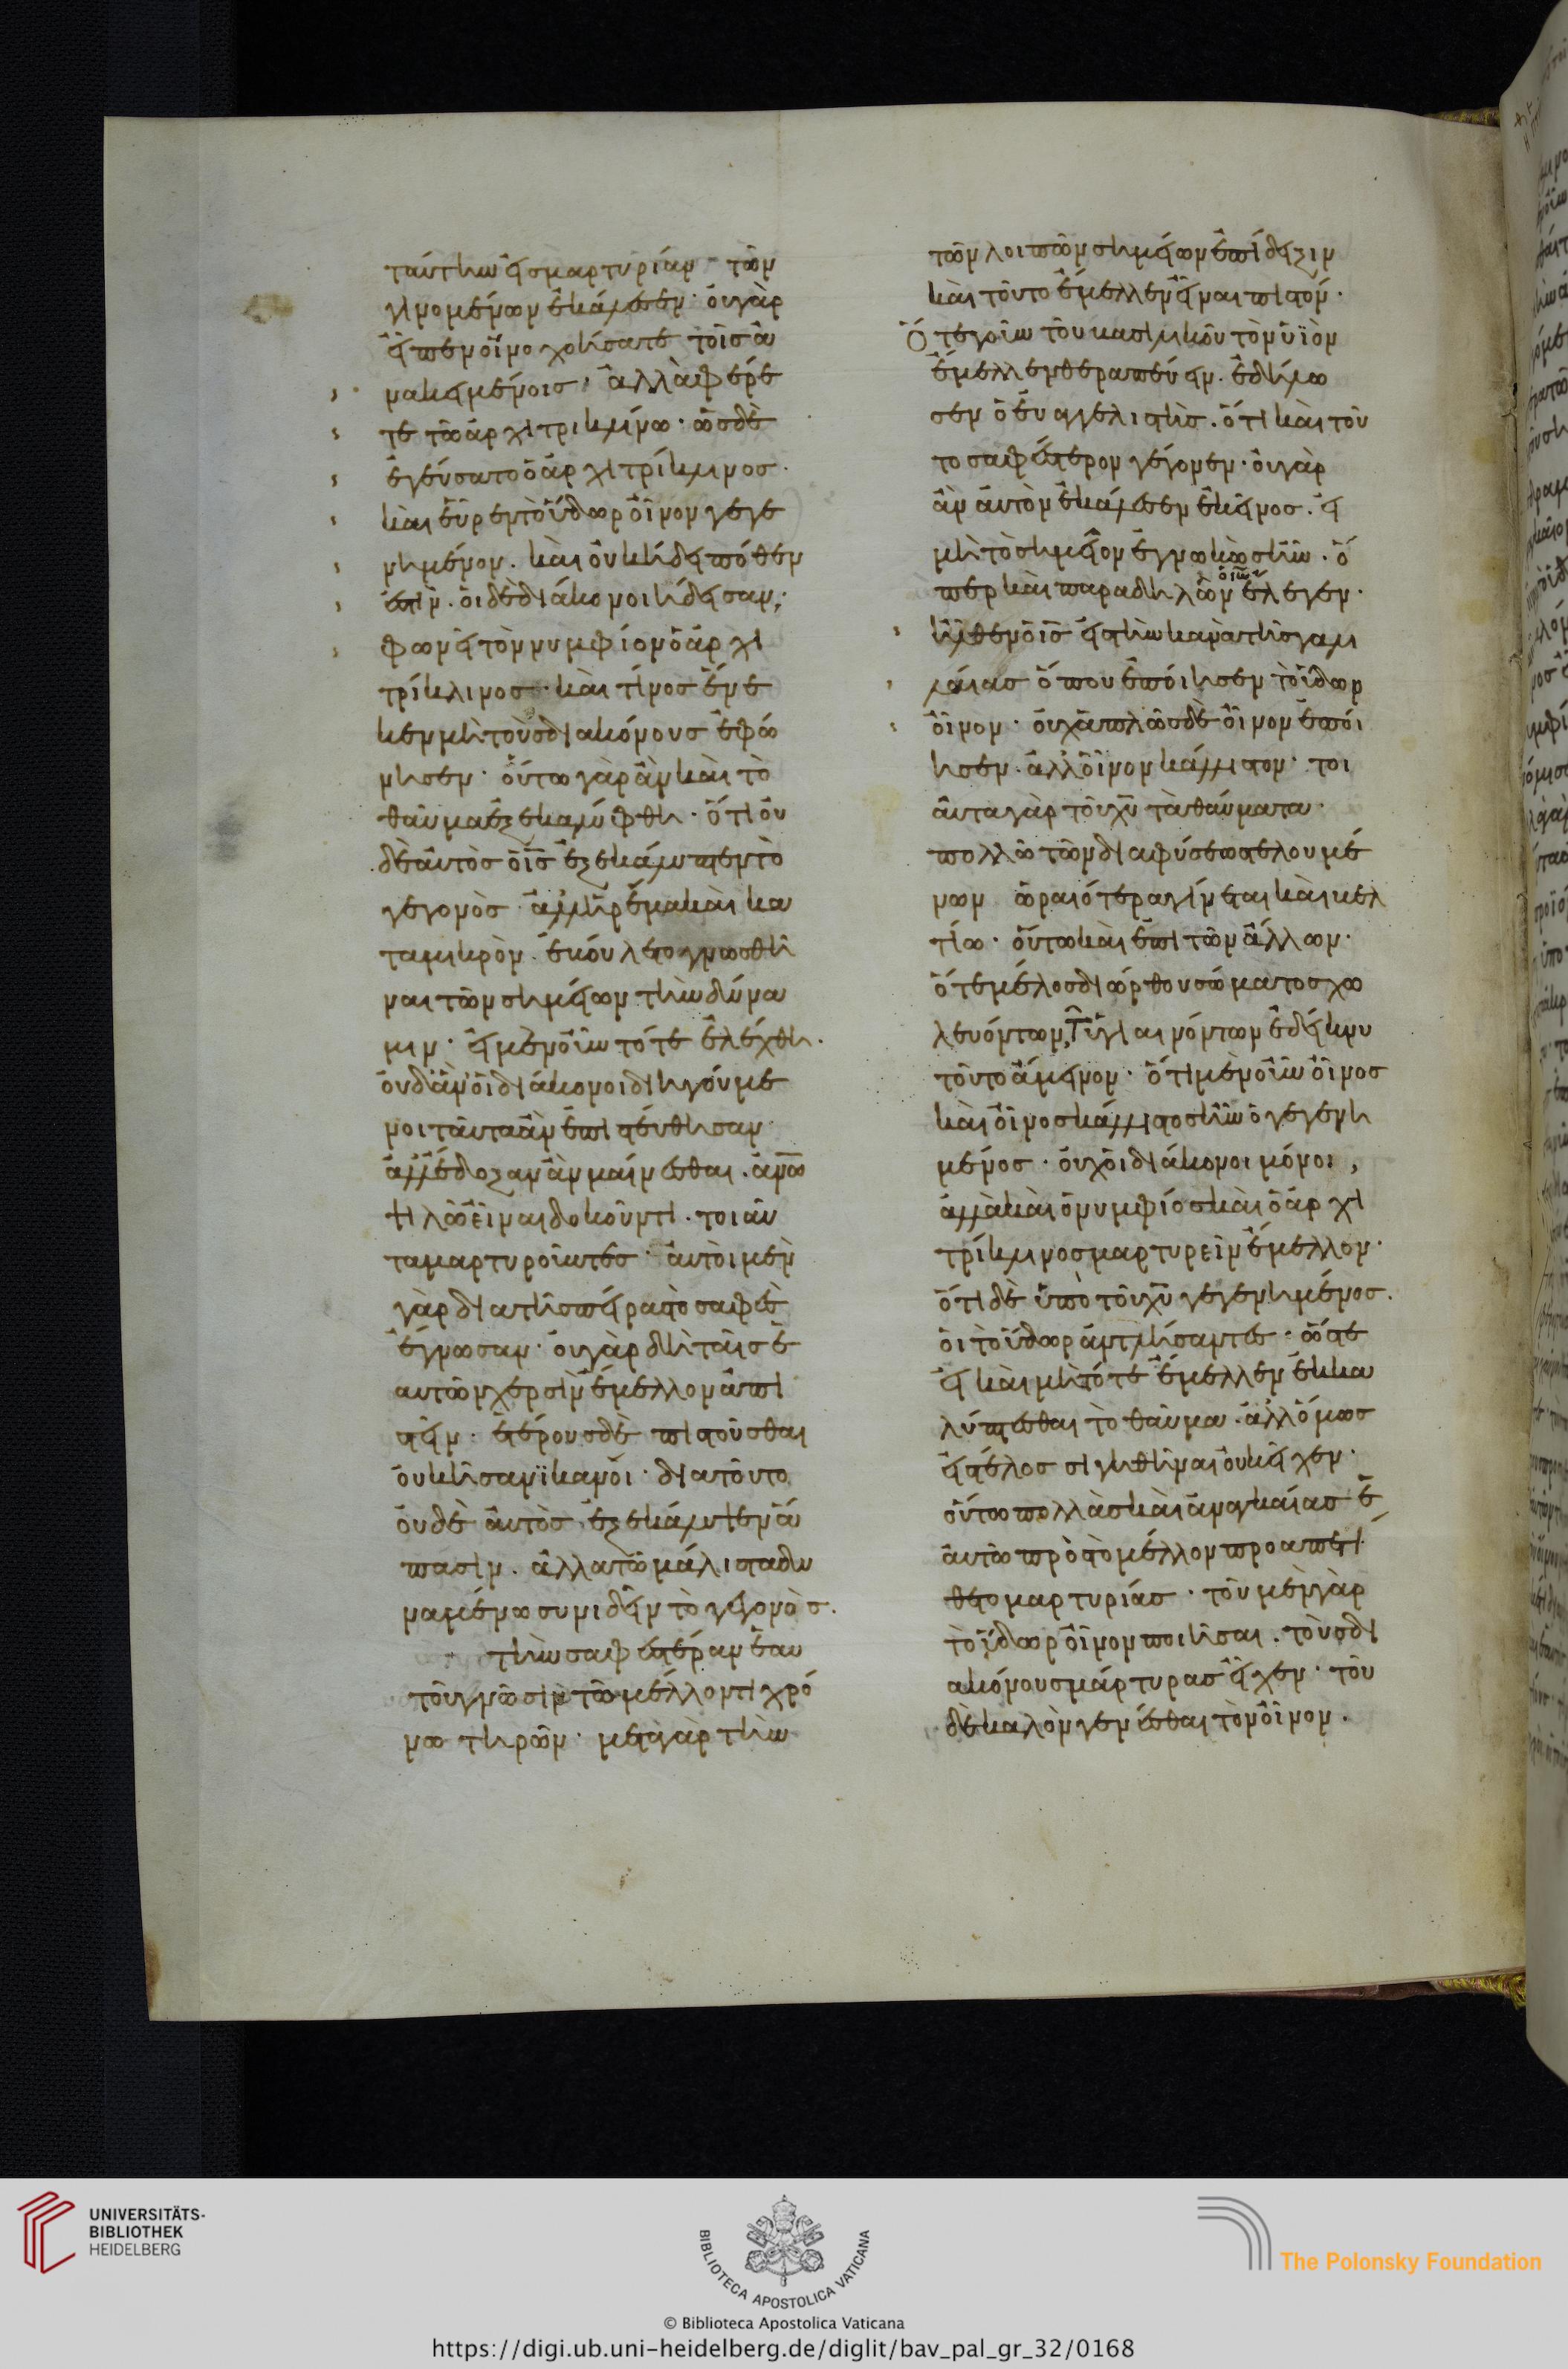 ταύτην εἰς μαρτυρίαν τῶν
γινομένων ἐκάλεσεν· οὐ γὰρ
εἶπεν οἰνοχοήσατε τοῖς ἀ
νακειμένοις, ἀλλὰ φέρε
τε τῶ ἀρχιτρικλίνω· ὡς δὲ
ἐγεύσατο ὁ ἀρχιτρίκλινος·
καὶ εὗρεν τὸ ὕδωρ οἶνον γεγε
νημένον. καὶ οὐκ ἤδει πόθεν
ἐστίν. οἱ δὲ διάκονοι ἤδεισαν·
φωνεῖ τὸν νυμφίον ὁ ἀρχι
τρίκλινος· καὶ τίνος ἕνε
κεν μὴ τοὺς διακόνους ἐφώ
νησεν· οὕτω γὰρ ἂν καὶ τὸ
θαῦμα ἐξεκαλύφθη· ὅτι οὐ
δὲ αὐτὸς ὁ ις ἐξεκάλυπτεν τὸ
γεγονὸς· ἀλλ' ἠρέμα καὶ κα
τα μικρὸν ἐβούλετο γνωσθῆ
ναι τῶν σημείων τὴν δύνα
μιν· εἰ μὲν οὖν τότε ἐλέχθη·
οὐδ' ἂν οἱ διάκονοι διηγούμε
νοι ταῦτα ἂν ἐπιστεύθησαν·
ἀλλ' ἔδοξαν ἂν μαίνεσθαι. ἀνω
ψιλῶ εἶναι δοκοῦντι. τοιαῦ
τα μαρτυροῦντες· αὐτοὶ μὲν
γὰρ δια τῆς πείρας τὸ σαφὲς
ἔγνωσαν· οὐ γὰρ δὴ ταῖς ἑ
αυτῶν χερσὶν ἔμελλον ἀπι
στεῖν· ἑτέρους δὲ πιστοῦσθαι
οὐκ ἦσαν ἱκανοί· δια τοῦτο
οὐδὲ αὐτὸς ἐξεκάλυψεν ἅ
πασιν. ἀλλα τῶ μάλιστα δυ
ναμένω συνιδεῖν τὸ γεγονὸς.
τὴν σαφεστέραν ἑαυ
τοῦ γνῶσιν τῶ μέλλοντι χρό
νω τηρῶν· μετὰ γὰρ τὴν
τῶν λοιπῶν σημείων ἐπίδειξιν
καὶ τοῦτο ἔμελλεν εἶναι πιστόν·
Ὅτε γοῦν τοῦ βασιλικοῦ τὸν υἱὸν
ἔμελλεν θεραπεύειν. ἐδήλω
σεν ὁ εὐαγγελιστὴς. ὅτι καὶ τοῦ
το σαφέστερον γέγονεν· οὐ γὰρ
ἂν αὐτὸν ἐκάλεσεν ἐκεῖνος. εἰ
μὴ τὸ σημεῖον ἐγνωκὼς ἦν. ὅ
περ καὶ παραδηλῶν ὁ ιω ἔλεγεν·
ἦλθεν ὁ ις εἰς τὴν κανὰ τῆς γαλι
λαίας ὅπου ἐποίησεν τὸ ὕδωρ
οἶνον· οὐχ ἁπλῶς δὲ οἶνον ἐποί
ησεν. ἀλλ' οἶνον κάλλιστον· τοι
αῦτα γὰρ τοῦ χυ τὰ θαύματα·
πολλῶ τῶν δια φύσεως τελουμέ
νων ὡραιότερα γίνεται καὶ βελ
τίω. οὕτω καὶ ἐπὶ τῶν ἄλλων·
ὅτε μέλος διώρθου σώματος χω
λευόντων, τῶν ὑγιαινόντων ἐδείκνυ
τοῦτο ἄμεινον· ὅτι μὲν οὖν οἶνος
καὶ οἶνος κάλλιστος ἦν ὁ γεγενη
μένος· οὐχ οἱ διάκονοι μόνοι,
ἀλλὰ καὶ ὁ νυμφίος καὶ ὁ ἀρχι
τρίκλινος μαρτυρεῖν ἔμελλον·
ὅτι δὲ ὑπὸ τοῦ χυ γεγενημένος.
οἱ τὸ ὕδωρ ἀντλήσαντες· ὥστε
εἰ καὶ μὴ τότε ἔμελλεν ἐκκα
λύπτεσθαι τὸ θαῦμα. ἀλλ' ὅμως
εἰς τέλος σιγηθῆναι οὐκ εἶχεν·
οὕτω πολλὰς καὶ ἀναγκαίας ἑ
αυτῶ πρὸς τὸ μέλλον προαπετί
θετο μαρτυρίας· τοῦ μὲν γὰρ
τὸ ὕδωρ οἶνον ποιῆσαι. τοὺς δι
ακόνους μάρτυρας εἶχεν· τοῦ
δὲ καλὸν γενέσθαι τὸν οἶνον.
UNIVERSITÄTS-
BIBLIOTHEK
HEIDELBERG
BIBLIOTECA APOSTOLICA VATICANA
The Polonsky Foundation
© Biblioteca Apostolica Vaticana
https://digi.ub.uni-heidelberg.de/diglit/bav_pal_gr_32/0168